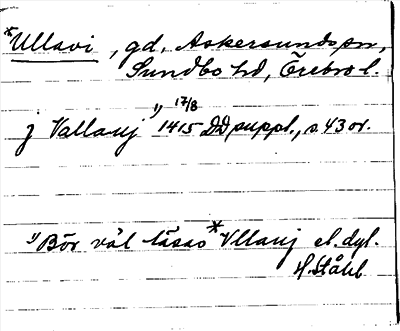 *Ullavi, gd, Askersunds sn,
Sundbo hd, Örebro l.
j Vallauj ¹⁾ 17/8 1415 DD suppl., s. 43 or.
¹⁾ Bör väl läsas *Vllauj el. dyl.
H. Ståhl